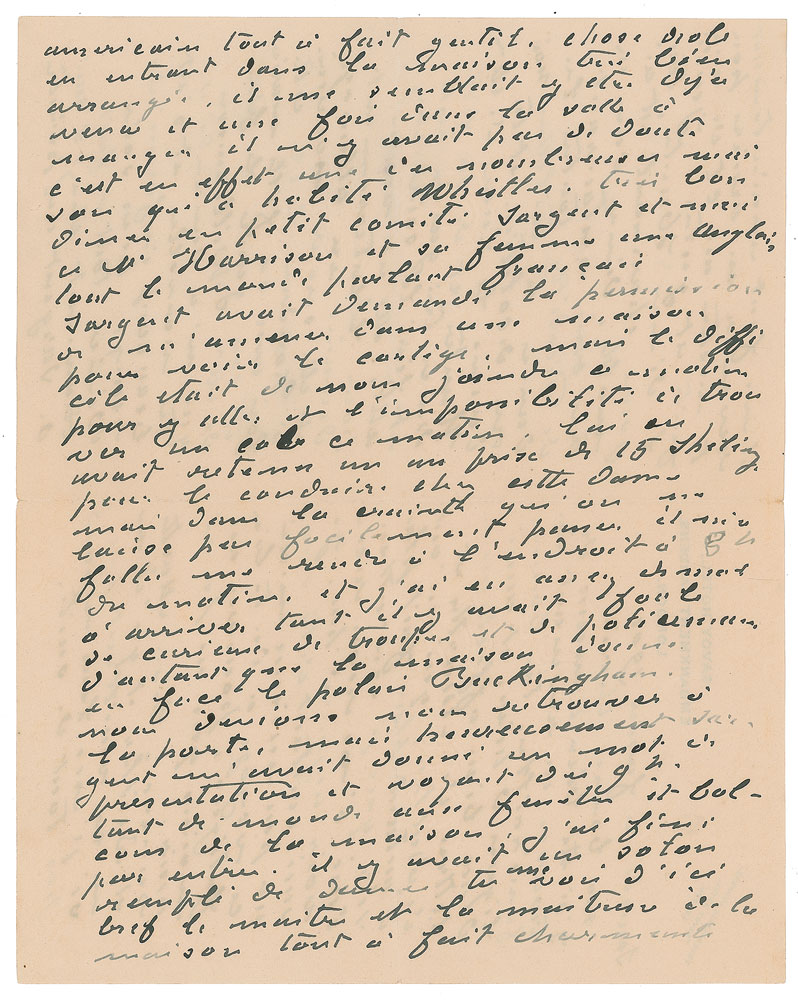 americain tout à fait gentil. chose drole
en entrant dans la maison très bien
arrangée, il me semblait y etre dejà
venu et une fois dans la salle à
manger il n'y avait pas de doute
c'est en effet une des nombreuses mai
son qu'a habité Whistler. très bon
diner en petit comité Sargent et moi
et Mr Harrison et sa femme une anglaise
tout le monde parlant français
Sargent avait demandé la permission
de m'amener dans une maison
pour voir le cortège. mais la diffi
culté etait de nous joindre ce matin
pour y aller et l'impossibilité de trou
ver un cab ce matin. lui en
avait retenu un au prix de 15 Sheling
pour le conduire chez cette dame
mais dans la crainte qu'on ne
laisse pas facilement passer il m'a
fallu me rendre à l'endroit à 8 h
du matin. et j'ai eu assez de mal
à arriver tant il y avait foule
de curieux de troupes et de policemen,
d'autant que la maison donne
en face le palais Buckingham.
nous devions nous retrouver à
la porte, mais heureusement Sar-
gent m'avait donné un mot de
presentation et voyant dès 9 h.
tant de monde aux fenêtres et bal-
cons de la maison, j'ai fini
par entrer. il y avait un salon
rempli de dames tu me vois d'ici
bref le maitre et la maitresse de la
maison tout à fait charmants